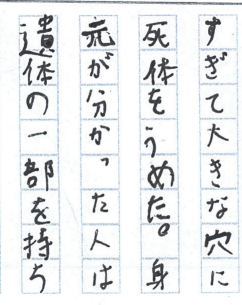 すぎて大きな穴に
死体をうめた。身
元が分かった人は
遺体の一部を持ち